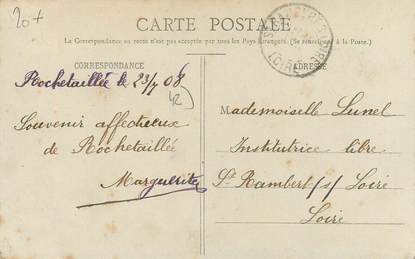 20+
CARTE POSTALE
La Correspondance au recto n'est pas acceptée par tous les Pays Étrangers. (Se renseigner à la Poste)
CORRESPONDANCE
ADRESSE
LOIRE
Rochetaillée le 23/7 08
42
Souvenir affectueux
de Rochetaillée
Marguerite
Mademoiselle Lunel
Institutrice libre
St Rambert s/ Loire
Loire